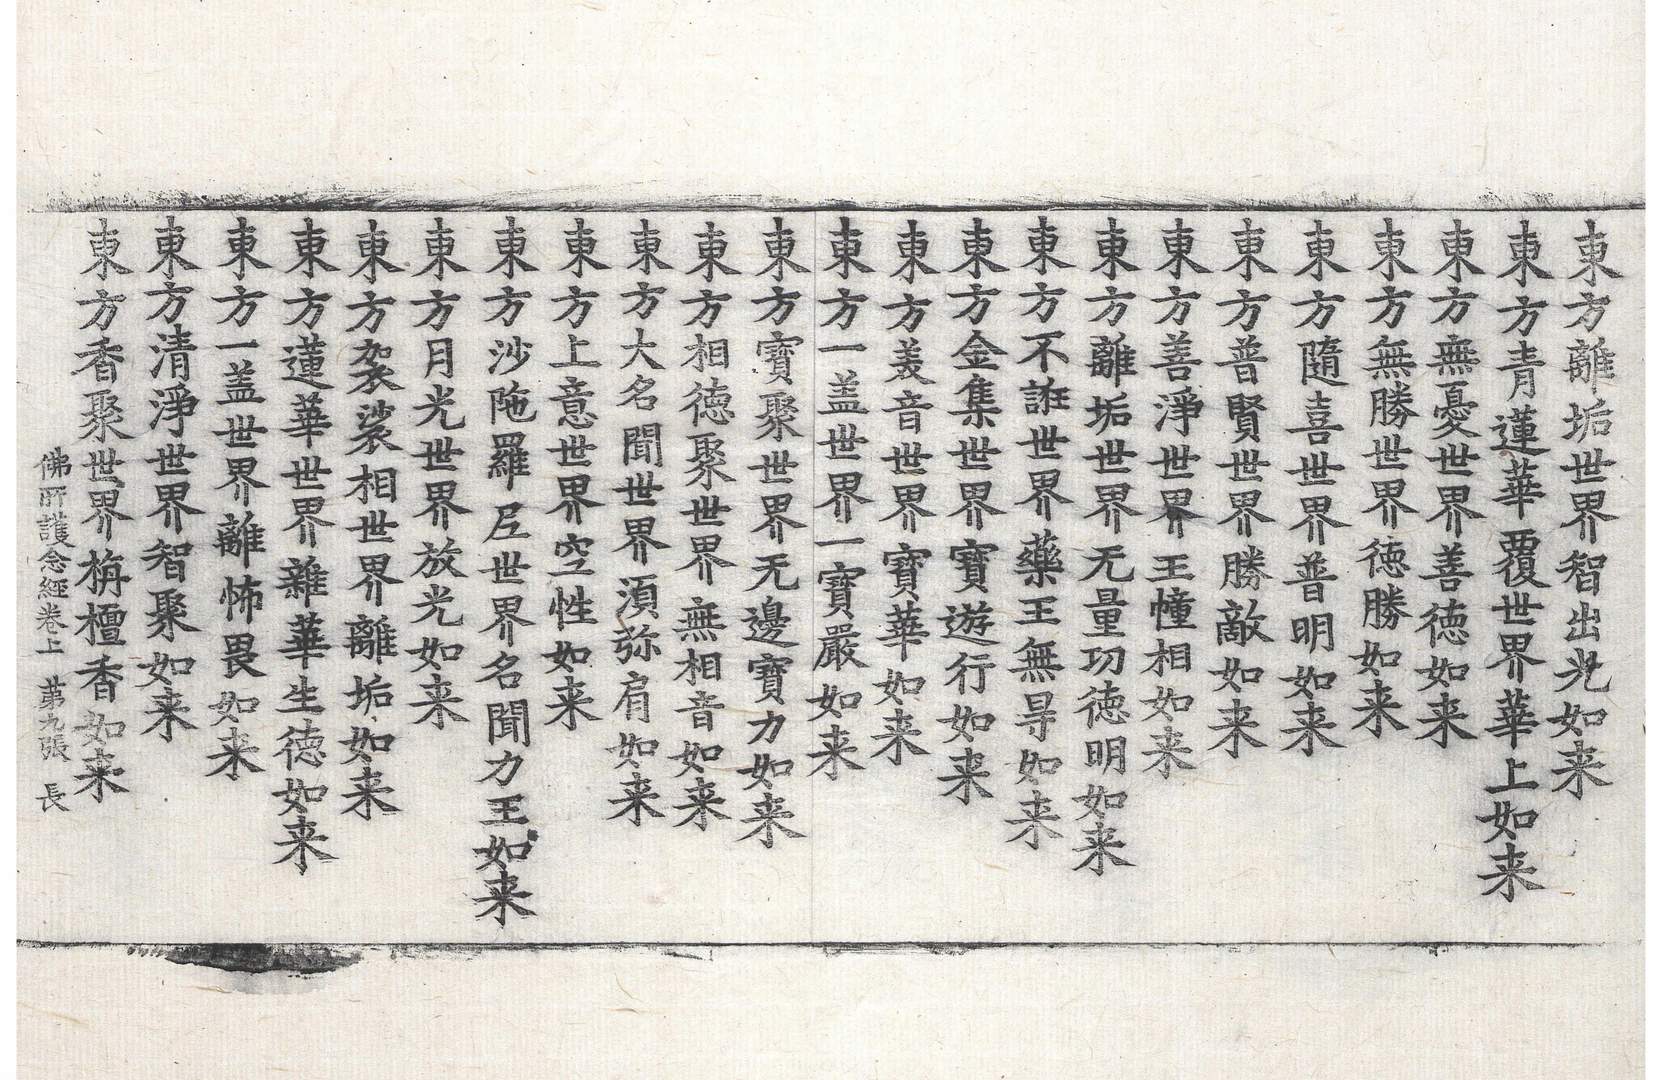 東方離垢世界智出光如来
東方青蓮華覆世界華上如来
東方無憂世界善徳如来
東方無勝世界徳勝如来
東方隨喜世界普明如来
東方普賢世界勝敵如来
東方善淨世界王幢相如来
東方離垢世界无量功徳明如来
東方不誑世界藥王無㝵如来
東方金集世界寶遊行如来
東方美音世界寶華如来
東方一盖世界一寶嚴如来
東方寶聚世界无邊寶力如来
東方相徳聚世界無相音如来
東方大名聞世界湏弥肩如来
東方上意世界空性如来
東方沙陁羅尼世界名聞力王如来
東方月光世界放光如来
東方袈裟相世界離垢如来
東方蓮華世界雜華生徳如来
東方一盖世界離怖畏如来
東方清淨世界智聚如来
東方香聚世界栴檀香如来
佛所護念經卷上 苐九張 長